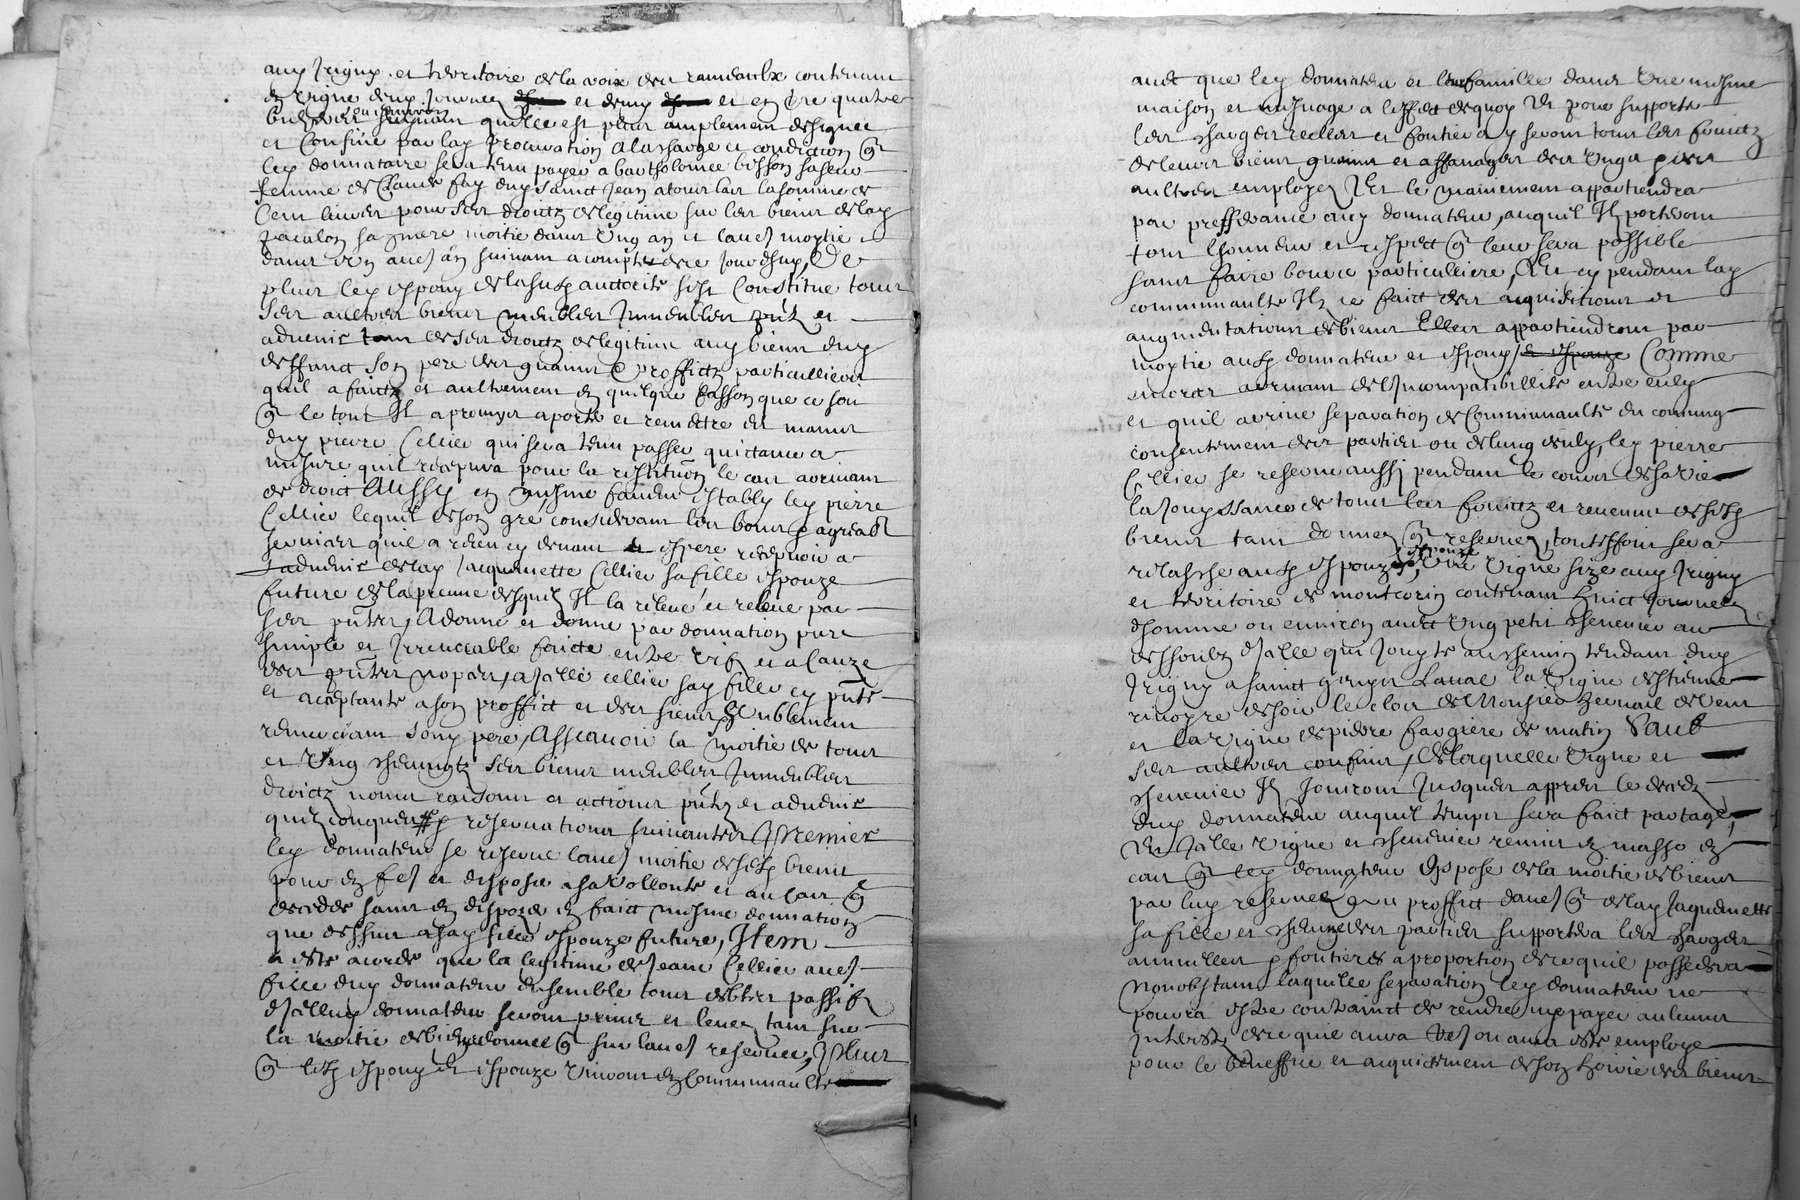 aud Irigny et territoire de la voix des rameaulx contenant
de vigne deux journees et demy et en terre quatre
ainsin quelle est plus amplement designee
et confine par lad procuration a la charge et condiction q
led donnataire sera tenu payer a bartholomee bisson sa seur
femme de Claude fay dud sainct Jean a tour las la somme de
cent livres pour ses droictz de legitime sur les biens de lad
sa mere moitie dans ung an et laut moytie
dans ung aut an suivant a compter de ce jourdhuy, De
plus led espoux de la susd auctorite sest constitue tous
ses aultres biens meubles immeubles pntz et
advenir de ses droictz de legitime aud biens dud
deffunct son pere des gains & proffictz particulliers
quil a faictz et aultrement en quelque fasson que ce soit
q le tout Il a promys aporte et remettre es mains
dud pierre Cellier qui sera tenu passer quictance a
mesure quil recepvra pour la restitution le cas advenant
de droict Aussy en mesme faveur estably led pierre
Cellier lequel de son gre considerant les bons & agreabl
services quil a receu cy devant et espere recepvoir a
ladvenir de lad Jaquemette Cellier sa fille espouze
future de la preuve desquelz Il la releve et releve par
ses pntes, A donne et donne par donnation pure
simple et Irrevocable faicte entre vifz et a cause
des pntes nopces, a Jalle cellier sad fille cy pnte
et aceptante a son proffict et des siens humblement
remerciant sond pere, Asscavoir la moitie de tous
et ung chescungtz ses biens meubles Immeubles
droictz noms raisons et actions pntz et advenir
quelzconques & reservations suivantes Premier
led donnateur se reserve laut moitie desd biens
pour en fe et dispose a sa vollonte et au cas q
decede sans en dispoze en faict mesme donnation
que dessus a sad fille espouze future, Item
a este acorde que la legitime de Jeane Cellier aut
fille dud donnateur ensemble tous debtes passifz
dicelluy donnateur seront prins et leves tant sur
la moitie de biens donnee q sur laut reservee, Plus
q lesd espoux et espouze vivront en communaulte
avec que led donnateur et leur famille dans une mesme
maison et mesnage a leffect de quoy et pour supporte
les charges reelles et fontieres y seront tous les fruictz
de leurs biens gains et affanages des ungs & des
aultres employes Et le maniement appartiendra
par prefferance aud donnateur, auquel Ilz porteront
tout lhonneur et respect q leur sera possible
sans faire bource particulliere, Et cy pendant lad
communaulte Ilz ce faict des acquisitions et
augmentations de biens Elles appartiendront par
moytie ausd donnateur et espoux et espouze Comme
encores advenant de lincompatibillite entre eulx
et quil advine separation de Communaulte du commung
consentement des parties ou de lung deulx, led pierre
Cellier se reserve aussi pendant le cours de sa vie
la Jouyssance de tous les fruictz et revenus desd
biens tant donnes q reserves, touteffois sera
relasche ausd espoux espouze, une vigne size aud Irigny
et territoire de montcorin contenant huict journees
dhomme ou environ avec ung petit chenevier au
dessoubz dicelle qui Jouxte au chemin tendant dud
Irigny a sainct genys Laval la vigne destienne
de soir le clos de Monsieur de vent
et la vigne de pierre faugiere de matin Sauf
ses aultres confins, De laquelle vigne et
chenevier Ilz Jouiront Jusques appres le deces
dud donnateur auquel temps sera faict partage,
Et Jcelle vigne et chenevier remis en masse en
cas q led donnateur dispose de la moitie de biens
par luy reservee q au proffict daut q de lad Jaquemette
sa fille et chescungdes parties supportera les charges
annuelles & fontieres a proportion de ce quil possedera
Nonobstant laquelle separation led donnateur ne
pourra estre contrainct de rendre ny payer aulcuns
Interestz de ce quil aura receu ou aura este employe
pour le beneffice et acquictement de son hoirie des biens